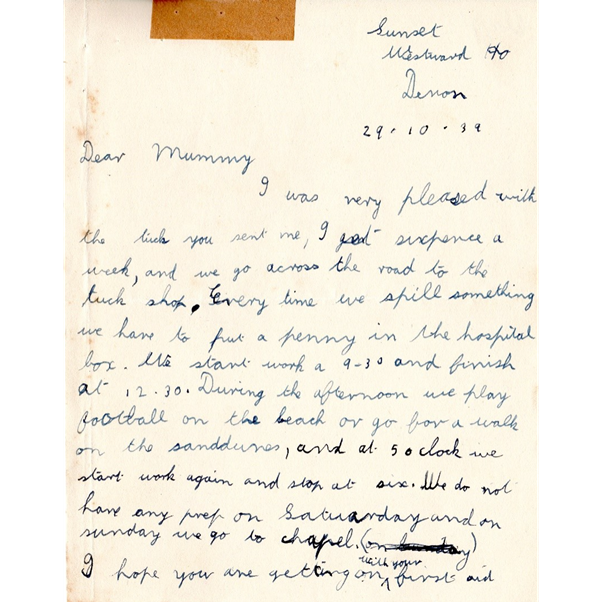 Sunset
Westward Ho
Devon
29.10.39
Dear Mummy
I was very pleased with
the tuck you sent me, I get sixpence a
week, and we go across the road to the
tuck shop. Every time we spill something
we have to put a penny in the hospital
box. We start work a 9-30 and finish
at 12.30. During the afternoon we play
football on the beach or go for a walk
on the sanddunes, and at 5 oclock we
start work again and stop at six. We do not
have any prep on Satuarday and on
sunday we go to chapel. (on sunday)
with your
I hope you are getting on ^ first aid